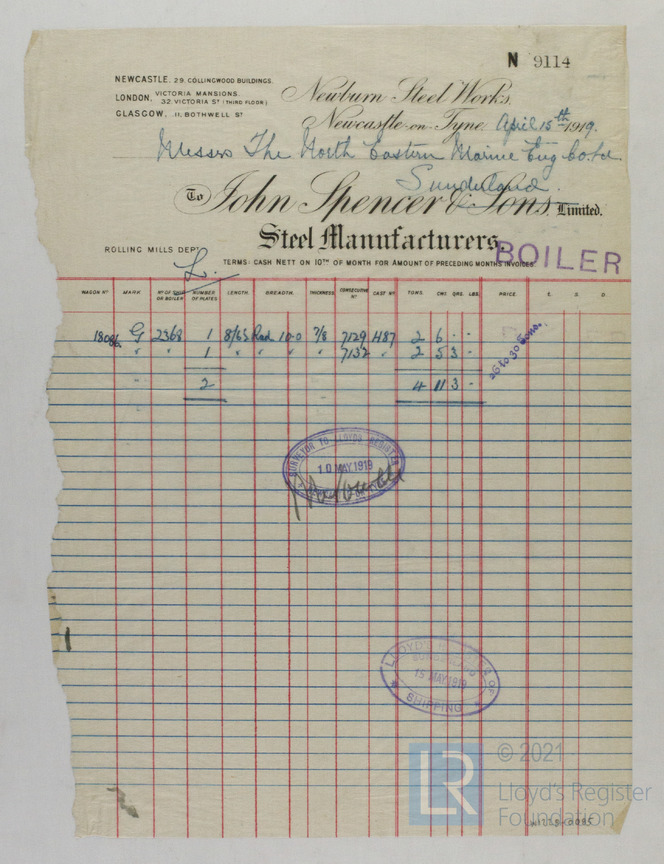 N 9114
NEWCASTLE, 29, COLLINGWOOD BUILDINGS.
LONDON, VICTORIA MANSIONS, 32, VICTORIA ST (THIRD FLOOR)
GLASGOW, 11, BOTHWELL ST
Newburn Steel Works,
Newcastle-on-Tyne, April 15th 1919.
Messrs The North Eastern Marine Eng Co Ltd
Sunderland.
To John Spencer & Sons, Limited.
Steel Manufacturers,
ROLLING MILLS DEPT
L.
BOILER
TERMS: CASH NETT ON 10TH OF MONTH FOR AMOUNT OF PRECEDING MONTHS INVOICES.
WAGON No MARK No OF SHIP OR BOILER NUMBER OF PLATES LENGTH. BREADTH. THICKNESS. CONSECUTIVE No CAST No TONS. CWT. QRS. LBS. PRICE. £. S. D.
G 2368 1 Rad 10-0 7/8 7129 H87 2 6 - -
" " 1 " " " 7132 " 2 5 3 -
2 4 11 3 -
26 to 30 tons.
SURVEYOR TO LLOYDS REGISTER
10 MAY 1919
LLOYD'S REGISTER OF
SUNDERLAND
15 MAY 1919
SHIPPING
LR
© 2021
Lloyd's Register
Foundation